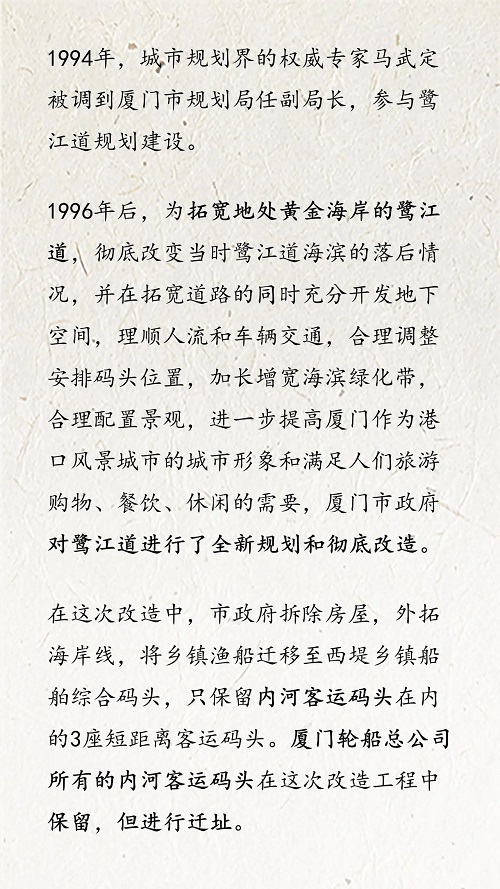 1994年，城市规划界的权威专家马武定
被调到厦门市规划局任副局长，参与鹭
江道规划建设。
1996年后，为拓宽地处黄金海岸的鹭江
道，彻底改变当时鹭江道海滨的落后情
况，并在拓宽道路的同时充分开发地下
空间，理顺人流和车辆交通，合理调整
安排码头位置，加长增宽海滨绿化带，
合理配置景观，进一步提高厦门作为港
口风景城市的城市形象和满足人们旅游
购物、餐饮、休闲的需要，厦门市政府
对鹭江道进行了全新规划和彻底改造。
在这次改造中，市政府拆除房屋，外拓
海岸线，将乡镇渔船迁移至西堤乡镇船
舶综合码头，只保留内河客运码头在内
的3座短距离客运码头。厦门轮船总公司
所有的内河客运码头在这次改造工程中
保留，但进行迁址。